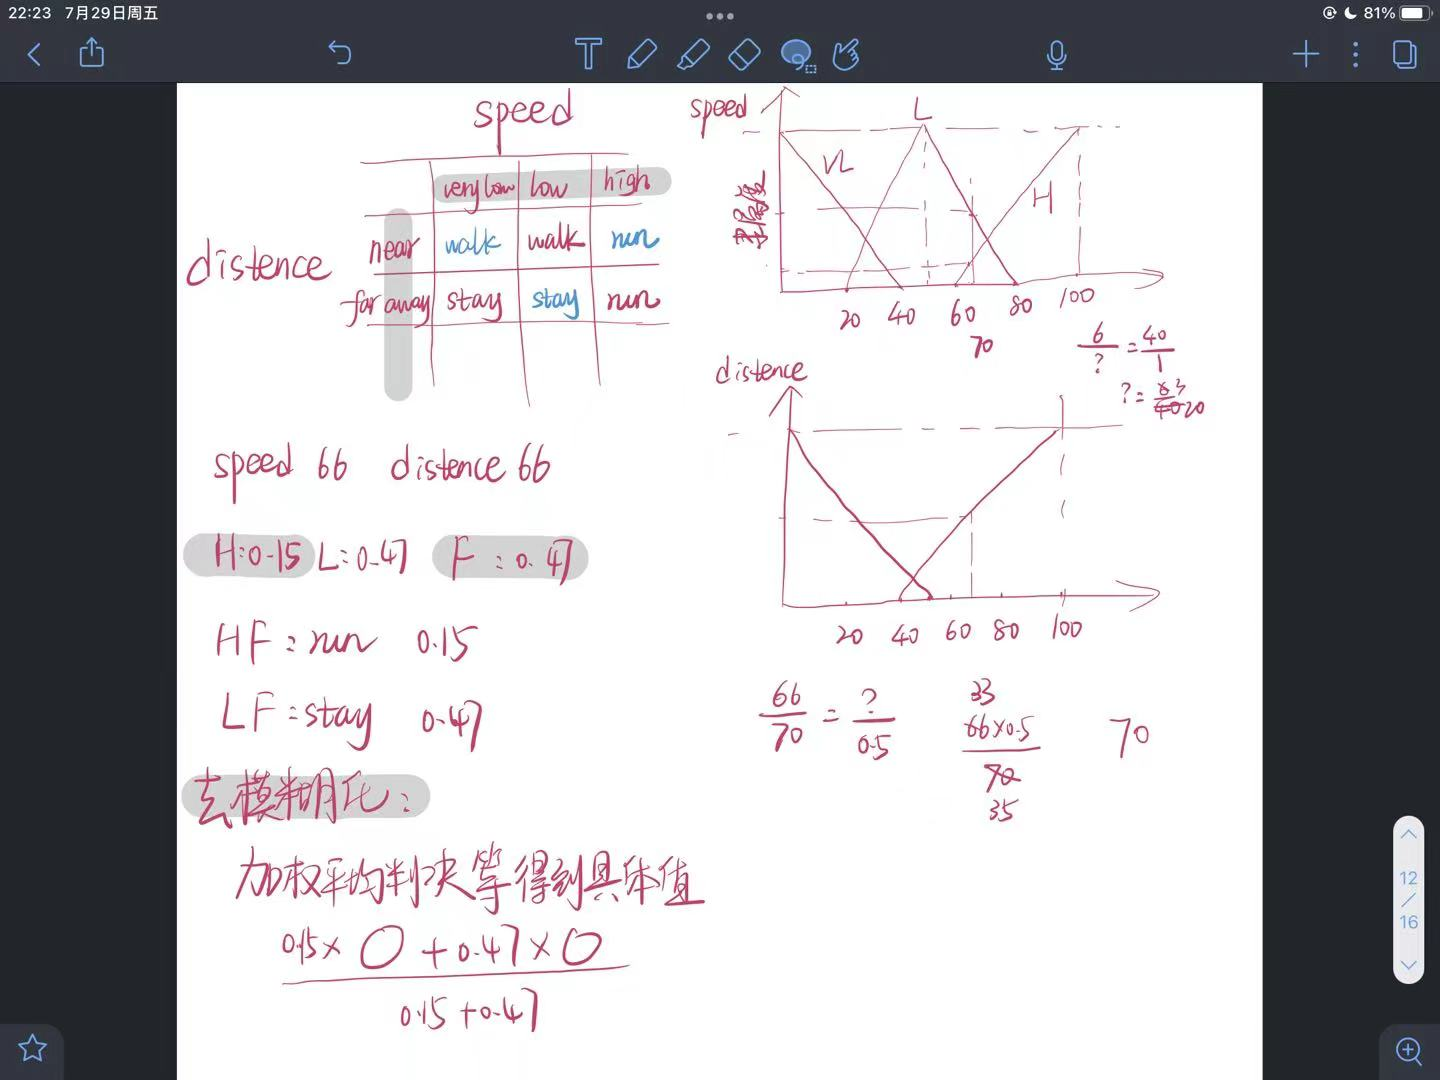 22:23 7月29日周五
81%
speed
very low low high
distence
near walk walk run
far away stay stay run
speed 66 distence 66
H:0.15 L:0.47 F:0.47
HF=run 0.15
LF=stay 0.47
去模糊化:
加权平均判决等得到具体值
0.15× O + 0.47× O
0.15+0.47
speed
L
VL
H
隶属度
20 40 60 80 100
70
6/? = 40/1
?= 3
20
distence
20 40 60 80 100
66/70 = ?/0.5
33
66×0.5
70
35
70
12
/
16